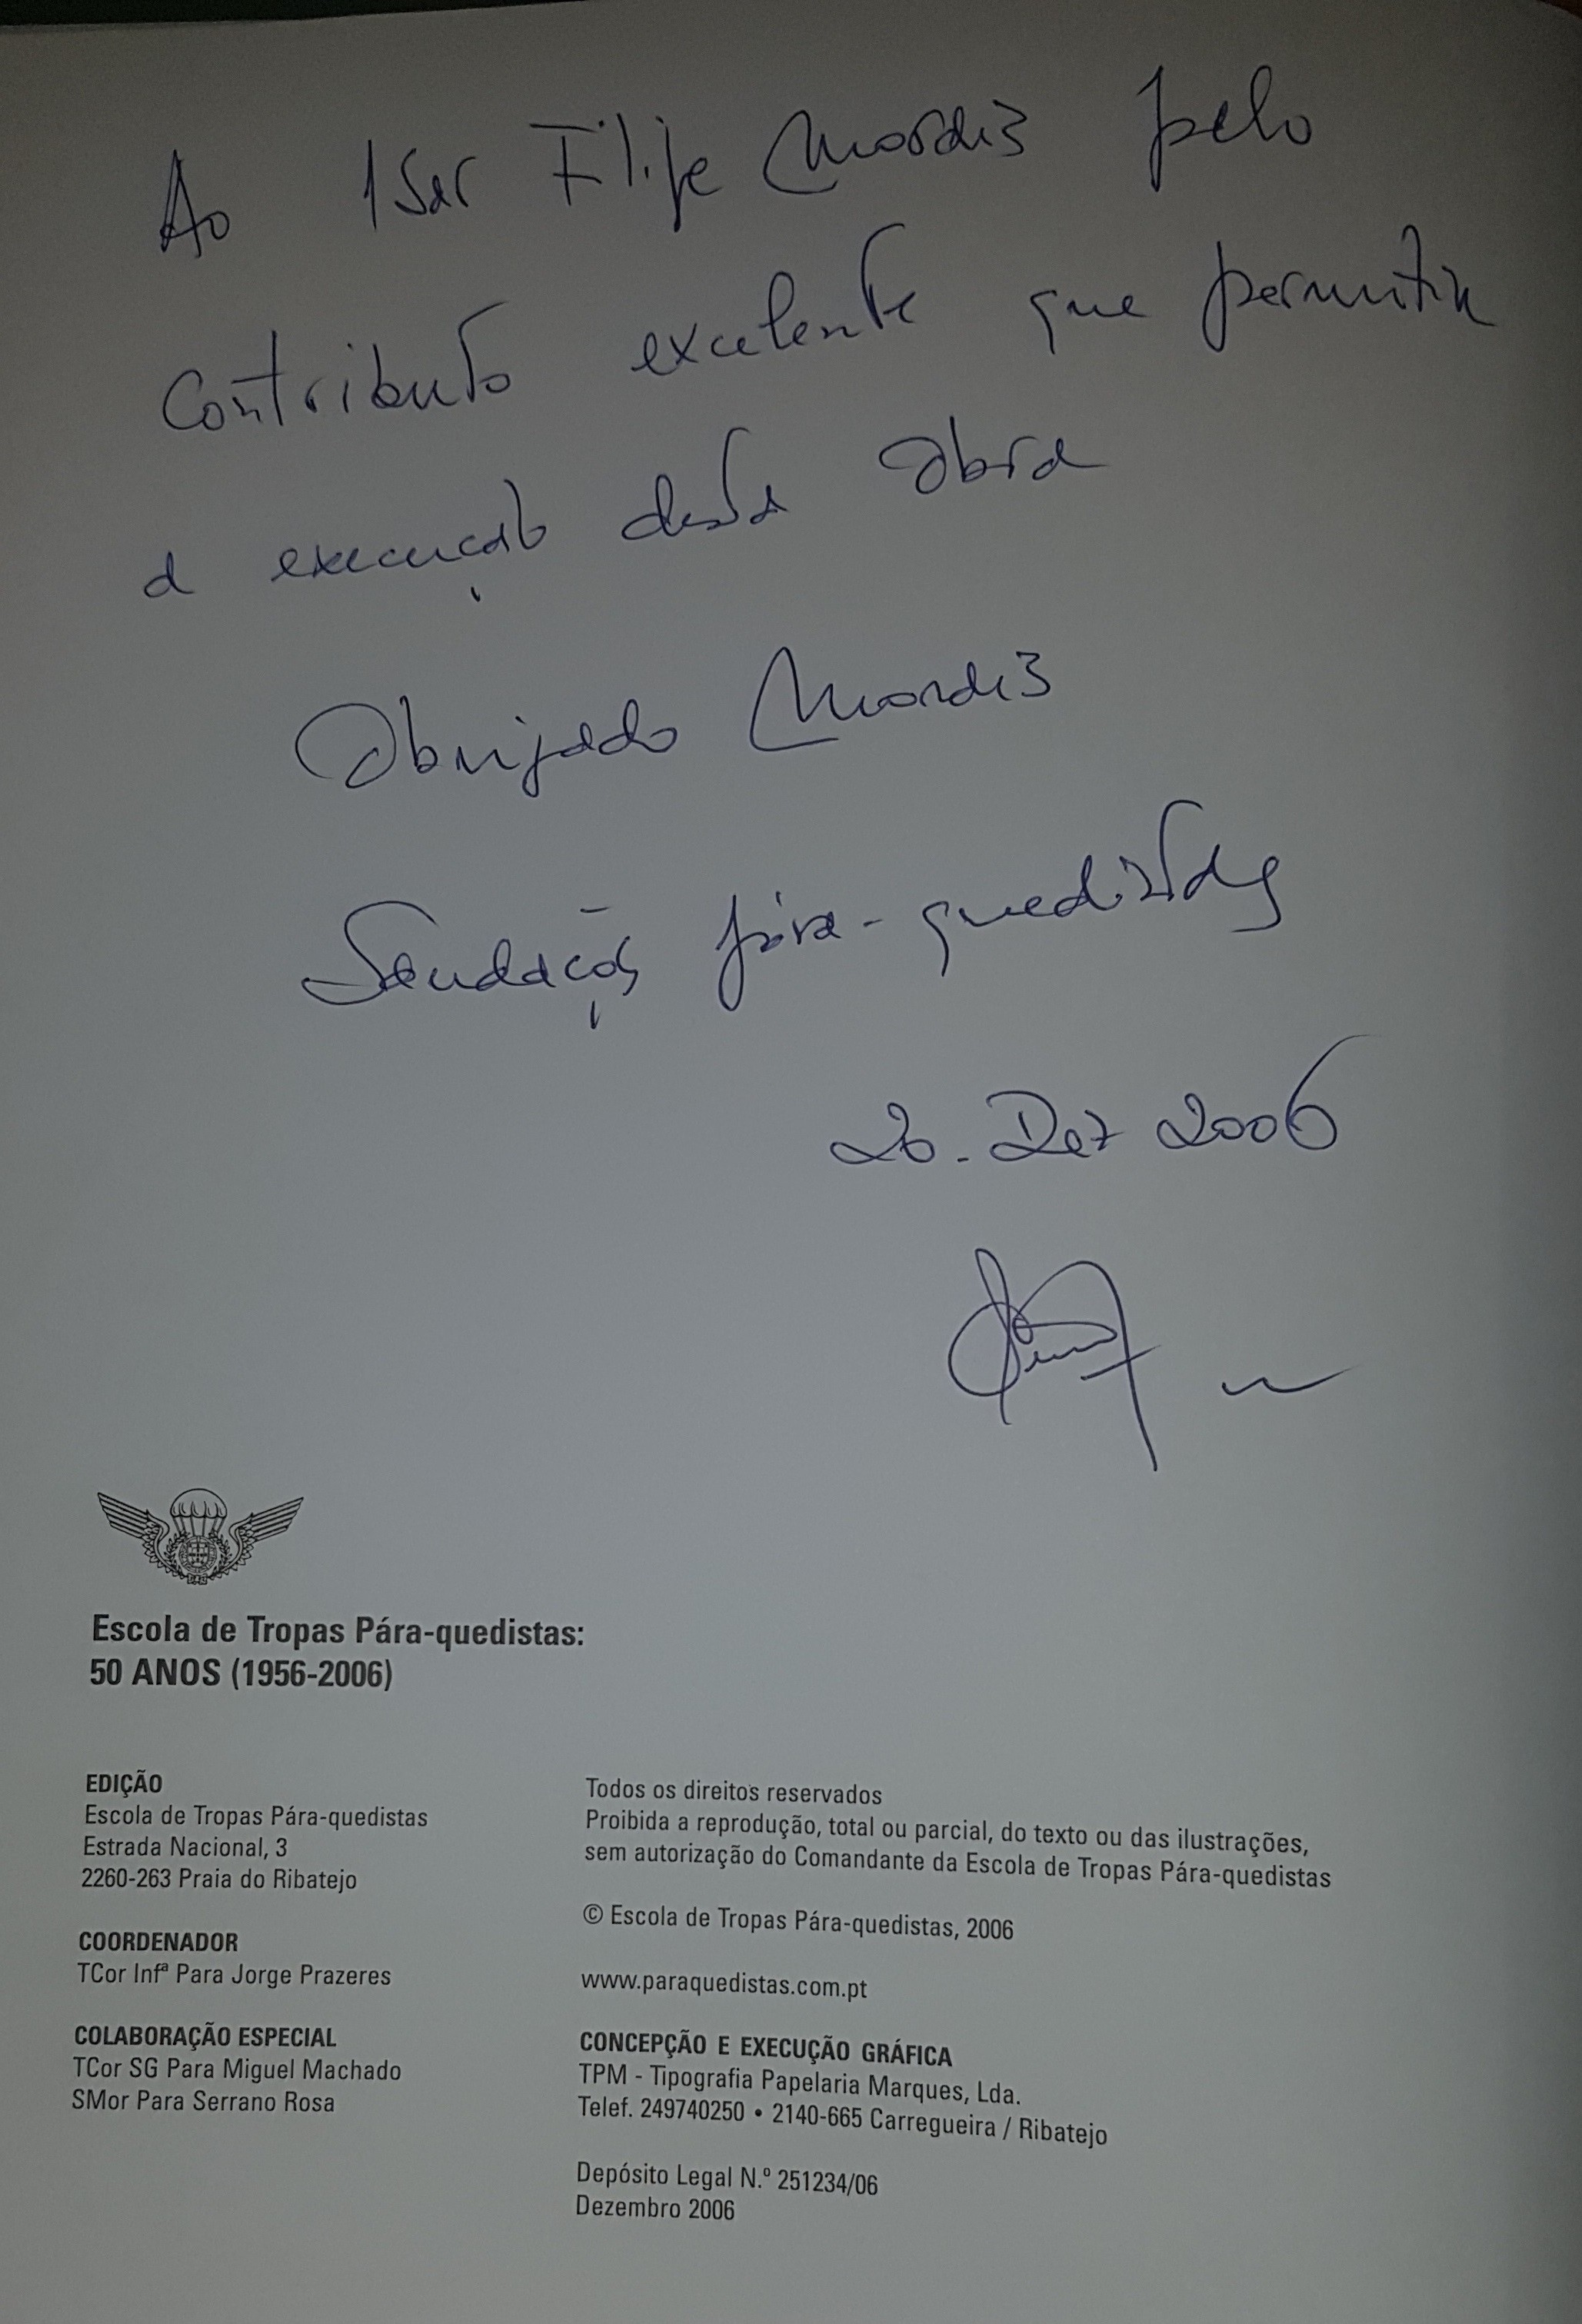 Ao 1Sar Filipe Morais pelo
Contributo excelente que permitiu
a execução desta obra
Obrigado Morais
Saudações pára-quedistas
20. Dez 2006
Escola de Tropas Pára-quedistas:
50 ANOS (1956-2006)
EDIÇÃO
Escola de Tropas Pára-quedistas
Estrada Nacional, 3
2260-263 Praia do Ribatejo
COORDENADOR
TCor Infª Para Jorge Prazeres
COLABORAÇÃO ESPECIAL
TCor SG Para Miguel Machado
SMor Para Serrano Rosa
Todos os direitos reservados
Proibida a reprodução, total ou parcial, do texto ou das ilustrações,
sem autorização do Comandante da Escola de Tropas Pára-quedistas
© Escola de Tropas Pára-quedistas, 2006
www.paraquedistas.com.pt
CONCEPÇÃO E EXECUÇÃO GRÁFICA
TPM - Tipografia Papelaria Marques, Lda.
Telef. 249740250 • 2140-665 Carregueira / Ribatejo
Depósito Legal N.º 251234/06
Dezembro 2006